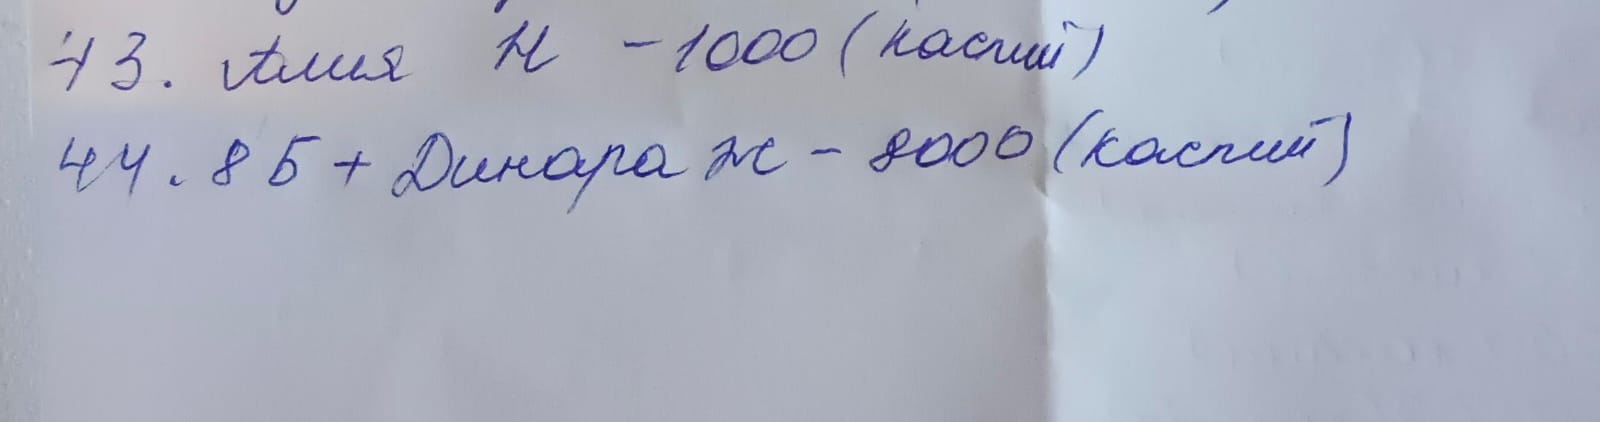 43. Алия Н - 1000 (каспий)
44. 8Б + Динара Ж - 8000 (каспий)